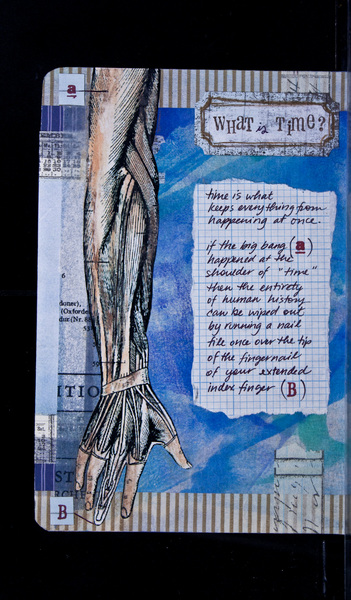 a
WHAT is TIME?
time is what
keeps everything from
happening at once.
if the big bang (a)
happened at the
shoulder of "time"
then the entirety
of human history
can be wiped out
by running a nail
file once over the tip
of the fingernail
of your extended
index finger (B)
6
(Oxford
53
59
ITIO
ST
RCHE
B